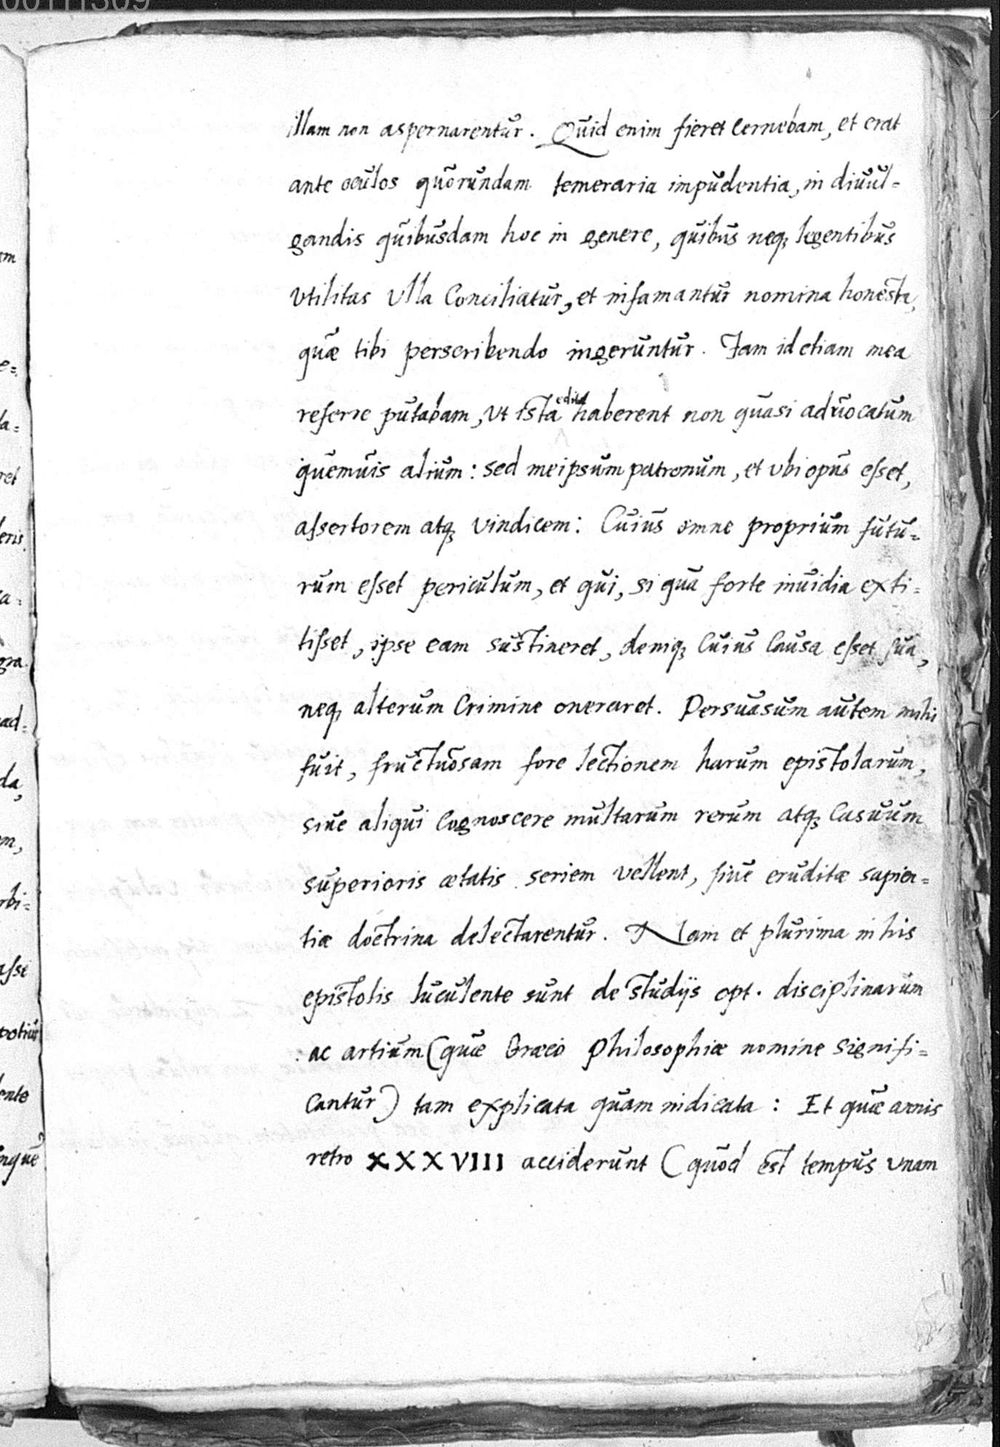 00111309
illam non aspernarentur. Quid enim fieret cernebam, et erat
ante oculos quorundam temeraria impudentia, in diuul=
gandis quibusdam hoc in genere, quibus neq; legentibus
vtilitas vlla conciliatur, et infamantur nomina honesta,
quæ tibi perscribendo ingeruntur. Iam id etiam mea
referre putabam, vt ista edita haberent non quasi aduocatum
quemuis alium: sed meipsum patronum, et vbi opus esset,
assertorem atq; vindicem: Cuius omne proprium futu=
rum esset periculum, et qui, si qua forte inuidia exti=
tisset, ipse eam sustineret, deniq; cuius causa esset sua,
neq; alterum crimine oneraret. Persuasum autem mihi
fuit, fructuosam fore lectionem harum epistolarum,
siue aliqui cognoscere multarum rerum atq; casuum
superioris ætatis seriem vellent, siue eruditæ sapien=
tiæ doctrina delectarentur. Nam et plurima in his
epistolis luculente sunt de studijs opt. disciplinarum
ac artium (quæ Græco Philosophiæ nomine signifi=
cantur) tam explicata quam indicata: Et quæ annis
retro XXXVIII acciderunt (quod est tempus vnam